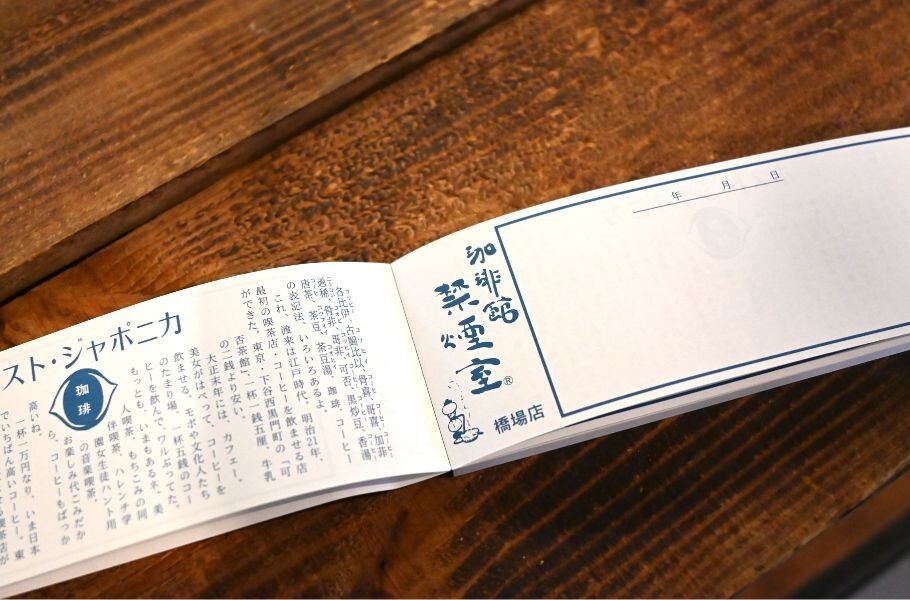 スト・ジャポニカ
珈琲
各比伊、古闘比以、骨喜、哥喜、加非、
過稀、骨非、哥非、可否、黒炒豆、香湯、
唐茶、茶豆、茶豆湯、珈琲、コーヒー
の表記法、いろいろあるよ。
これ、渡来は江戸時代、明治21年、
最初の喫茶店・コーヒーを飲ませる店
ができた。東京・下谷西黒門町の「可
否茶館」。一杯一銭五厘、牛乳
の二銭より安い。
大正末年には、カフェー。
美女がはべって、コーヒーを
飲ませる。モボや文化人たち
のたまり場。一杯五銭のコー
ヒーを飲んで、ワルぶってた。
もっとも、いまもあるネ、美
人喫茶、もちこみの同
伴喫茶、ハレンチ学
園女生徒ハント用
の音楽喫茶。
お楽しみ代こみだか
ら、コーヒーもばっか
高いね。
一杯一万円なり、いま日本
でいちばん高いコーヒー。東
年 月 日
珈琲館
禁煙室®
橋場店